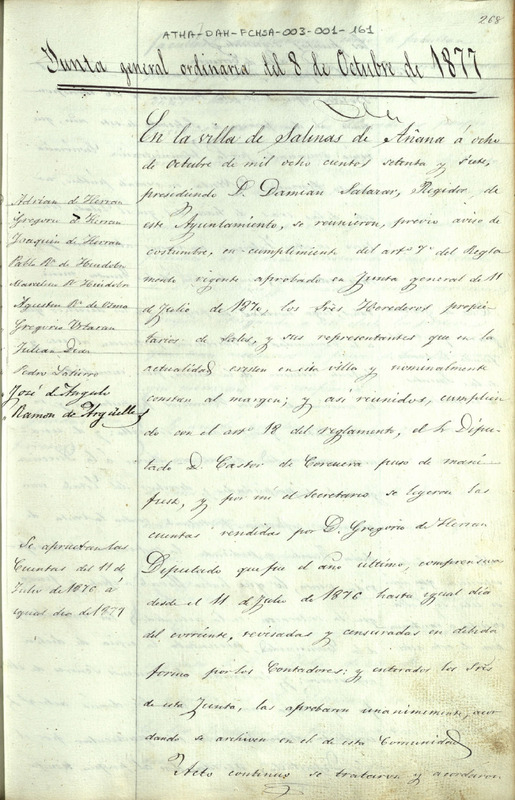 ATHA-DAH-FCHSA-003-001-161
268
Junta general ordinaria del 8 de Octubre de 1877
En la villa de Salinas de Añana á ocho
de Octubre de mil ocho cientos setenta y siete,
presidiendo D. Damian Salazar, Regidor de
este Ayuntamiento, se reunieron, previo aviso de
costumbre, en cumplimiento del artº 7º del Regla
mento vigente aprobado en Junta general de 11
de Julio de 1870, los Sres Herederos propie
tarios de Sales, y sus representantes que en la
actualidad existen en esta villa y nominalmente
constan al margen; y asi reunidos, cumplien
do con el artº 18 del reglamento, el Sr Dipu
tado D. Castor de Corcuera puso de mani
fiesto, y por mi el Secretario se leyeron las
cuentas rendidas por D. Gregorio de Herran
Diputado que fué el año último, comprensivas
desde el 11 de Julio de 1876 hasta igual dia
del corriente, revisadas y censuradas en debida
forma por los Contadores: y enterados los Sres
de esta Junta, las aprobaron unanimemente, acor
dando se archiven en el de esta Comunidad
Acto continuo se trataron y acordaron
Adrian de Herran
Gregorio de Herran
Joaquin de Herran
Pablo Rz de
Marcelino Rz
Agustin Rz de Osma
Gregorio Urbina
Julian Diaz
Pedro
José de Angulo
Ramon de Argüelles
Se aprueban las
Cuentas del 11 de
Julio de 1876 á
igual dia de 1877